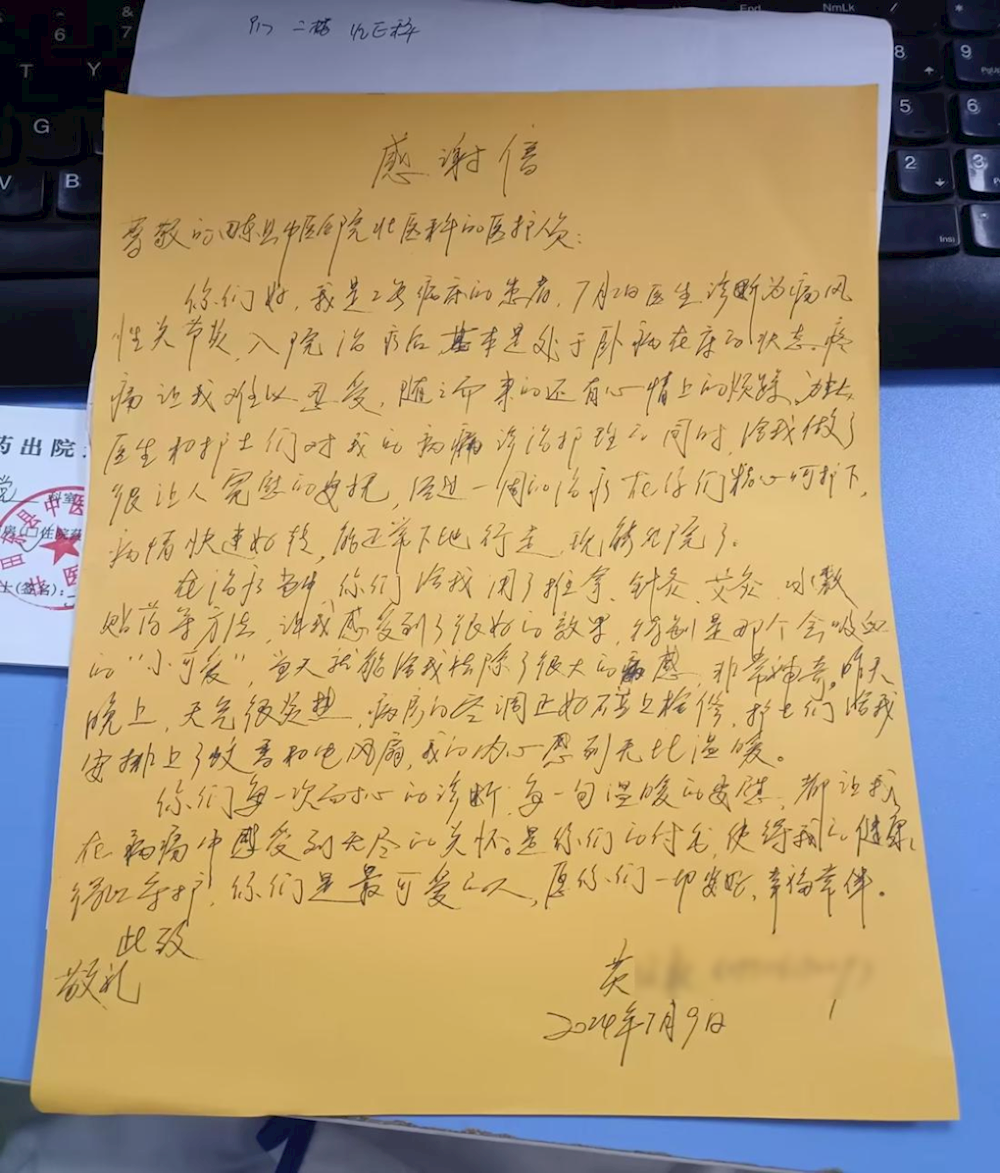 感谢信
尊敬的田东县中医医院壮医科的医护人员：
你们好，我是2号病床的患者，7月2日医生诊断为痛风
性关节炎，入院治疗后基本是处于卧病在床的状态。疼
痛让我难以忍受，随之而来的还有心情上的烦躁，
医生和护士们对我的病痛诊治护理的同时，给我做了
很让人宽慰的安抚，经过一周的治疗在你们精心呵护下，
病情快速好转，能正常下地行走，现能出院了。
在治疗当中，你们给我用了推拿、针灸、艾灸、冰敷
贴药等方法，让我感受到了很好的效果，特别是那个会吸血
的“小可爱”，当天就能给我祛除了很大的痛感，非常神奇。昨天
晚上，天气很炎热，病房的空调正好碰上检修，护士们给我
安排上了蚊香和电风扇，我的内心感到无比温暖。
你们每一次耐心的诊断，每一句温暖的安慰，都让我
在病痛中感受到无尽的关怀。是你们的付出，使得我的健康
得以守护，你们是最可爱的人，愿你们一切安好，幸福常伴。
此致
敬礼
黄
2024年7月9日
二楼
药出院
科室
县中医
6
7
T
Y
G
V
B
End
NmLk
8
9
5
6
2
3
Ins